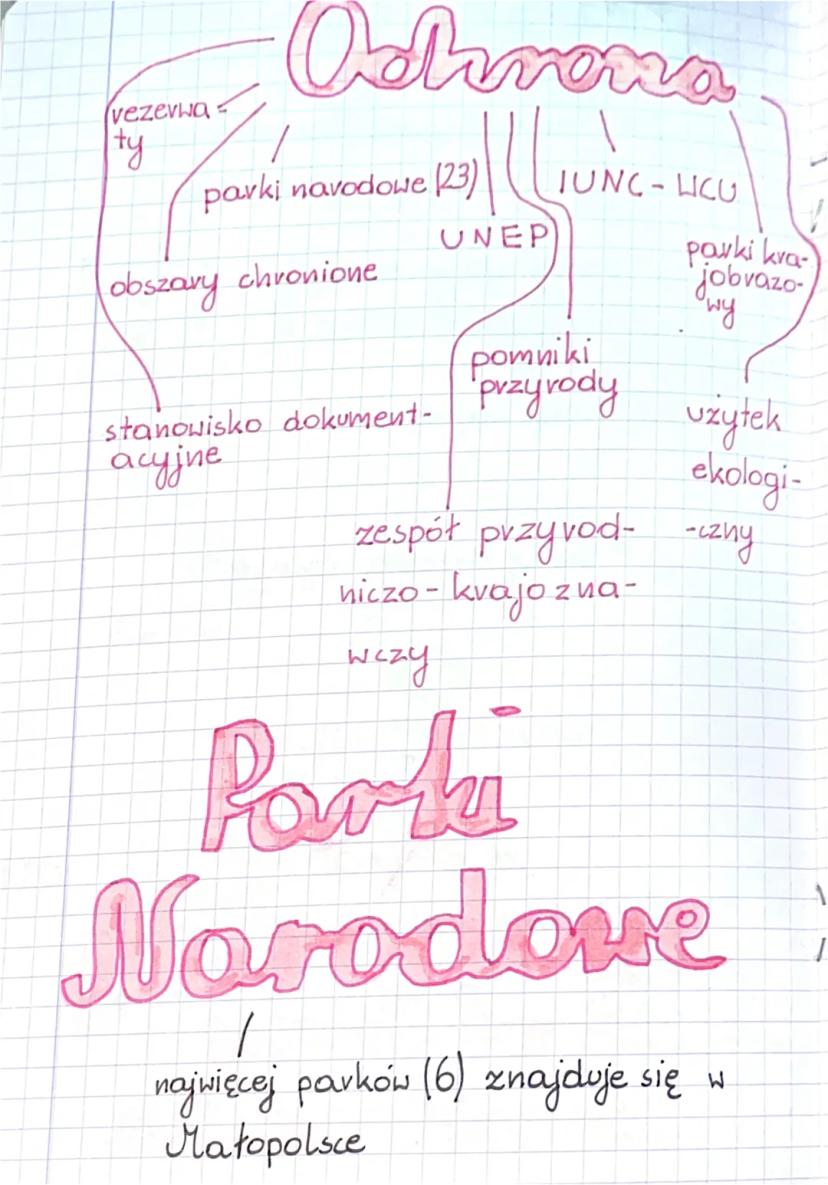 Ochrona
rezerwa-
ty
parki narodowe (23)
IUNC - UCU
UNEP
parki kra-
jobrazo-
wy
obszary chronione
pomniki
przyrody
stanowisko dokument-
acyjne
użytek
ekologi-
-czny
zespół przyrod-
niczo - krajozna-
wczy
Parki
Narodowe
najwięcej parków (6) znajduje się w
Małopolsce